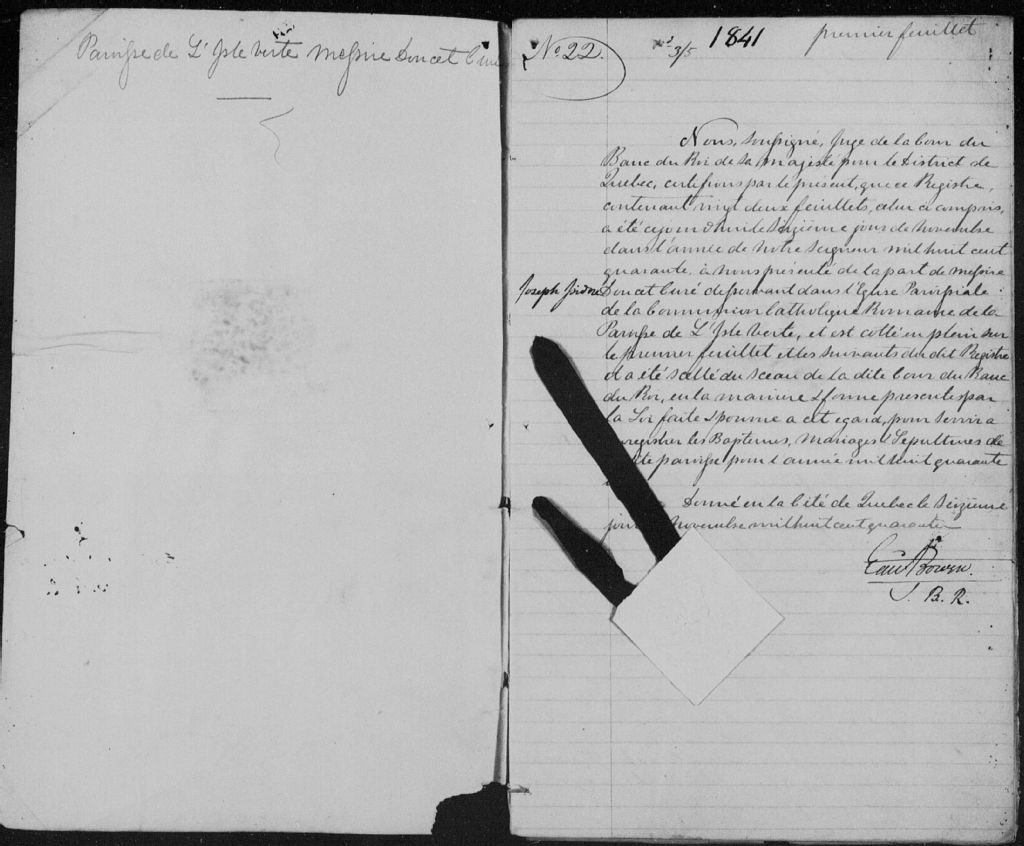 Paroisse de L'Isle Verte Messire Doucet Curé
No 22.
1841
premier feuillet
Nous, soussigné, Juge de la Cour du
Banc du Roi de Sa Majesté pour le District de
Quebec, certifions par le présent, que ce Registre,
contenant vingt deux feuillets, celui ci compris,
a été ce jourd'hui le Seizième jour de Novembre
dans l'année de Notre Seigneur mil huit cent
quarante, à nous présenté de la part de Messire
Joseph Isidore Doucet Curé desservant dans l'Eglise Paroissiale
de la Communion Catholique Romaine de la
Paroisse de L'Isle Verte, et est cotté en plein sur
le premier feuillet et les suivants du dit Registre
et a été scellé du Sceau de la dite Cour du Banc
du Roi, en la manière & forme prescrites par
la Loi faite & pourvue a cet egard, pour servir a
enregistrer les Baptemes, Mariages & Sepultures de
dite paroisse pour l'année mil huit quarante
Donné en la Cité de Quebec le Seizieme
jour Novembre mil huit cent quarante
Edw Bowen.
J. B. R.